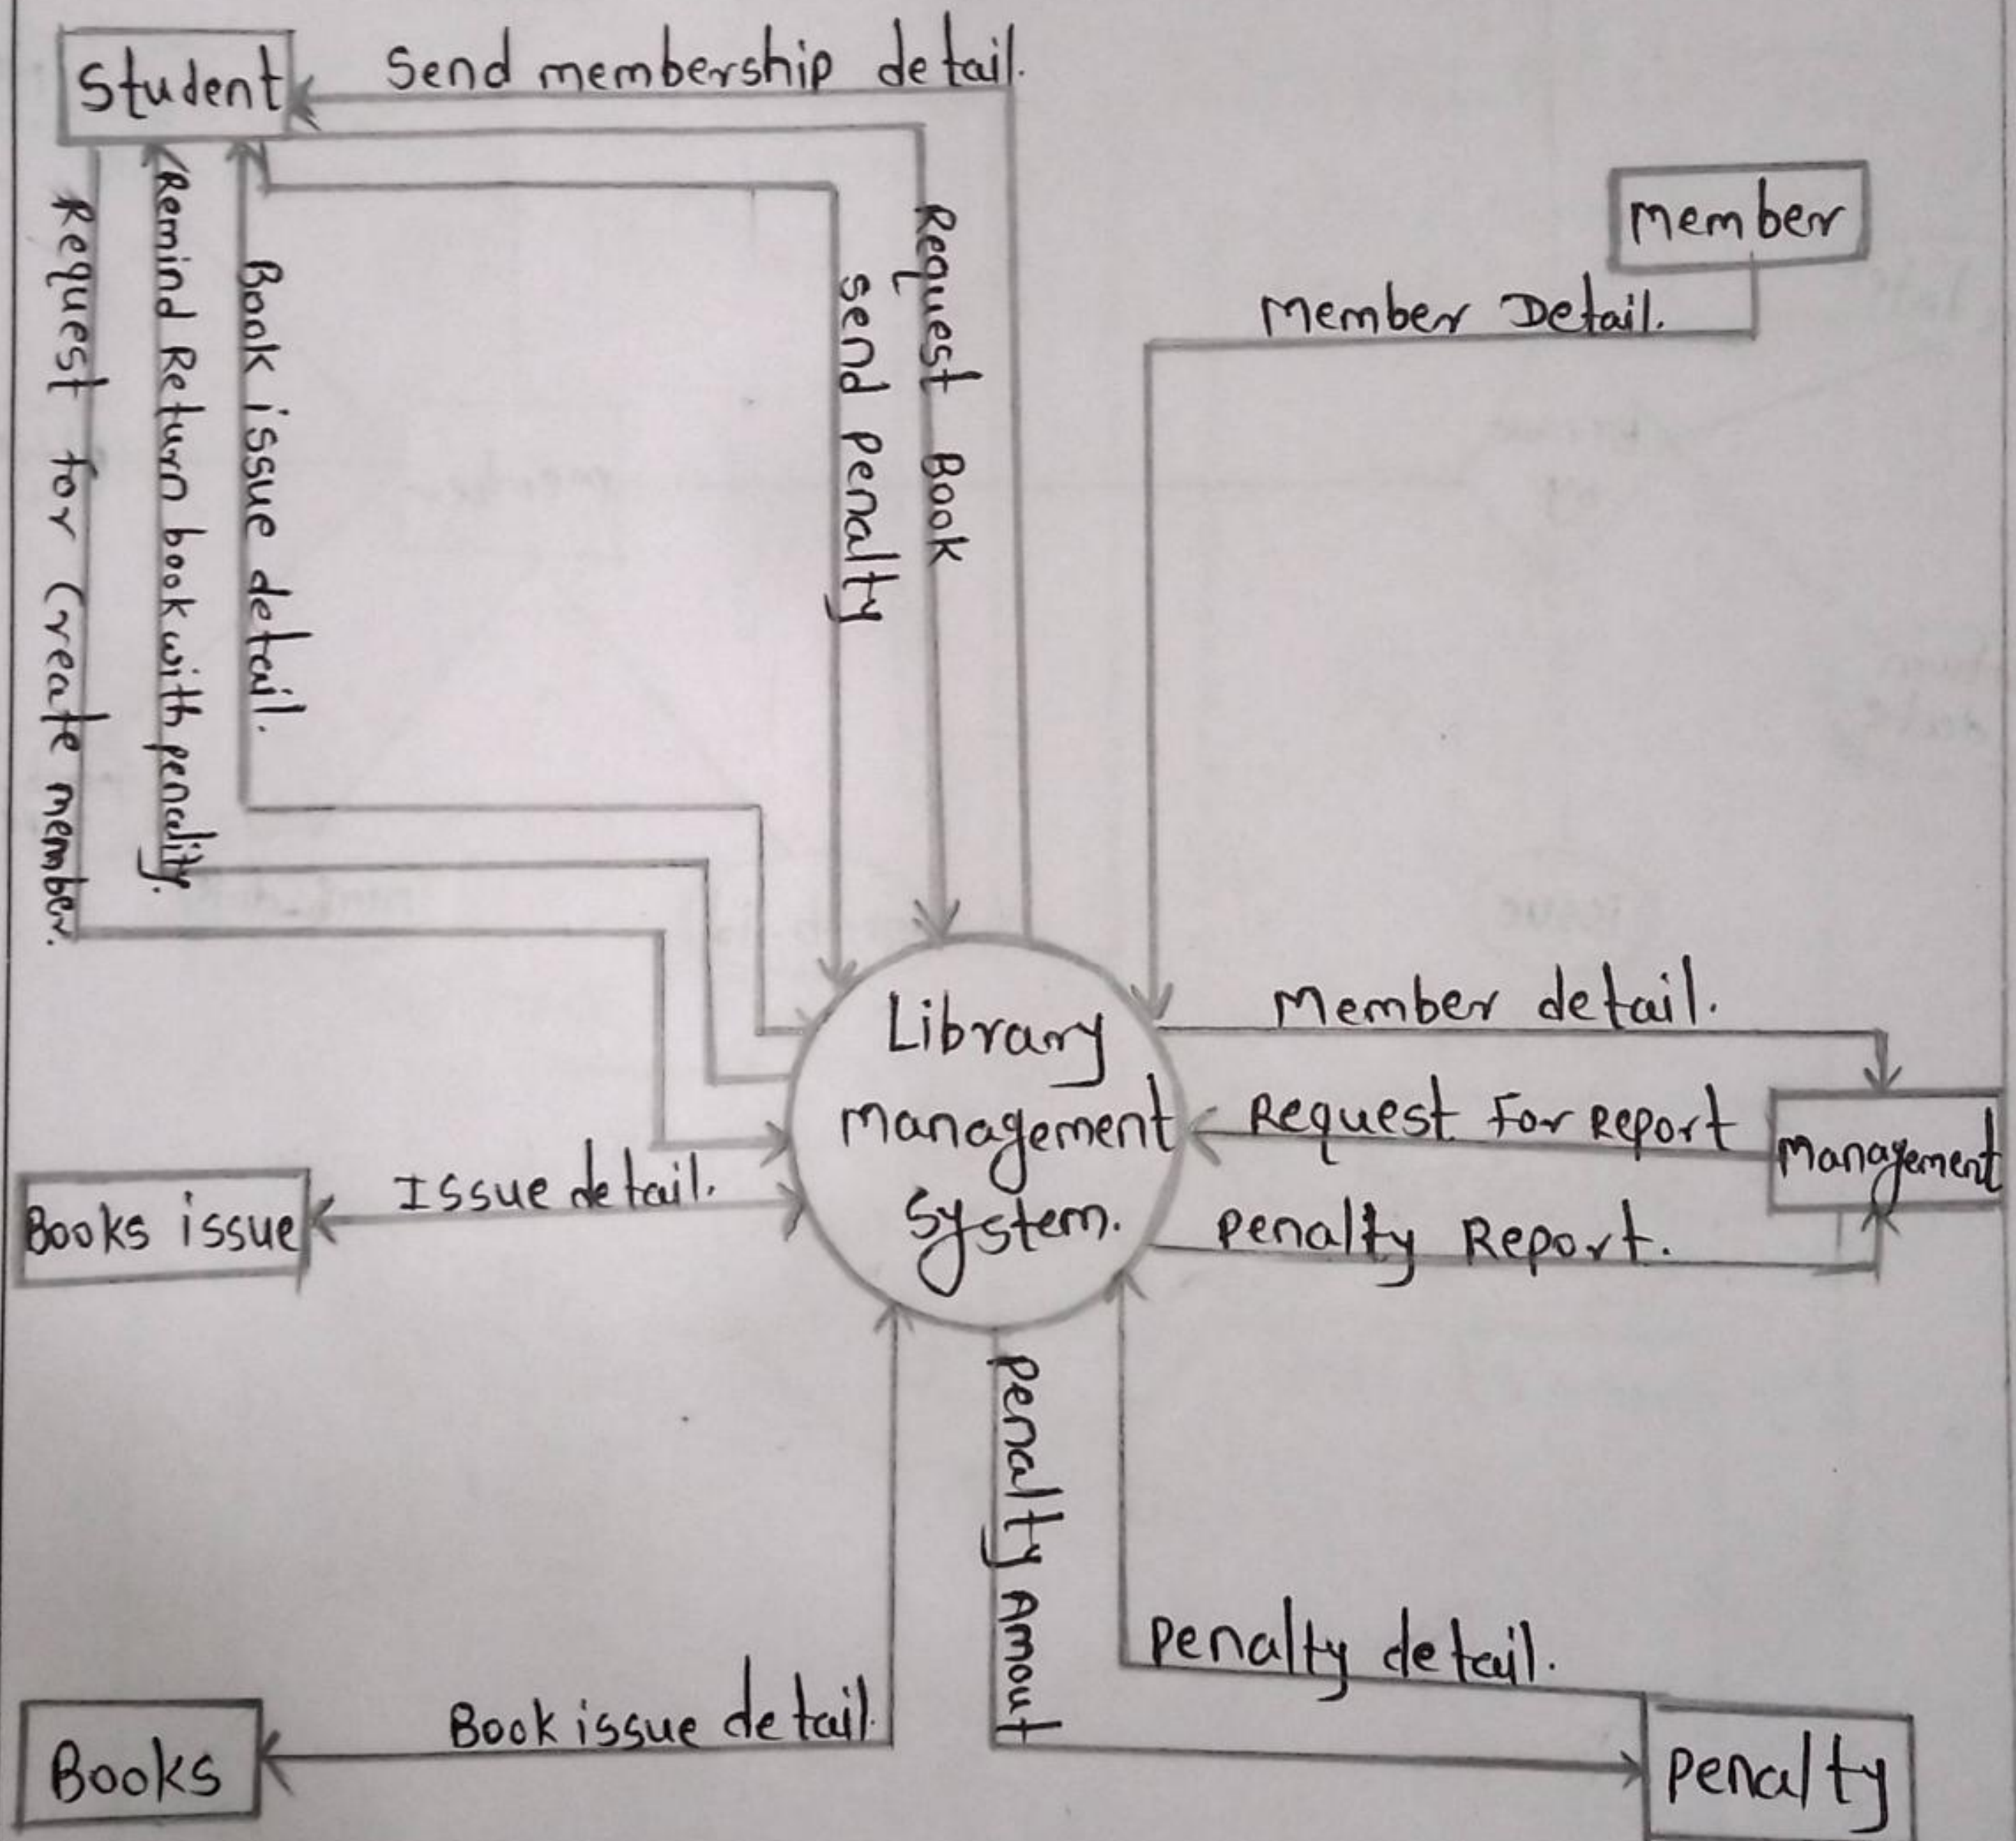 Student
Send membership detail.
Request for Create member.
Remind Return book with penality.
Book issue detail.
send penalty
Request Book
member
Member Detail.
Library
management
System.
Member detail.
Request For Report
management
penalty Report.
Books issue
Issue detail.
Penalty Amout
penalty detail.
Book issue detail.
Books
penalty